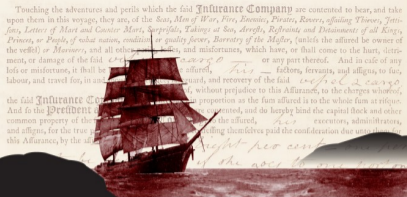 Touching the adventures and perils which the said Insurance Company are contented to bear, and take
upon them in this voyage, they are, of the Seas, Men of War, Fire, Enemies, Pirates, Rovers, assailing Thieves, Jetti-
sons, Letters of Mart and Counter Mart, Surprisals, Takings at Sea, Arrests, Restraints and Detainments of all Kings,
Princes, or People, of what nation, condition or quality soever, Barratry of the Master, (unless the assured be owner of
the vessel) or Mariners, and all other misfortunes, which have, or shall come to the hurt, detri-
ment, or damage of the said cargo or any part thereof. And in case of any
loss or misfortune, it shall be assured, his factors, servants, and assigns, to sue,
labour, and travel for, in and recovery of the said cargo
without prejudice to this Assurance, to the charges whereof,
the said Insurance Co proportion as the sum assured is to the whole sum at risque.
And so the President contented, and do hereby bind the capital stock and other
common property of the the assured, his executors, administrators,
and assigns, for the true themselves paid the consideration due unto them for
this Assurance, by the
Eight per cent